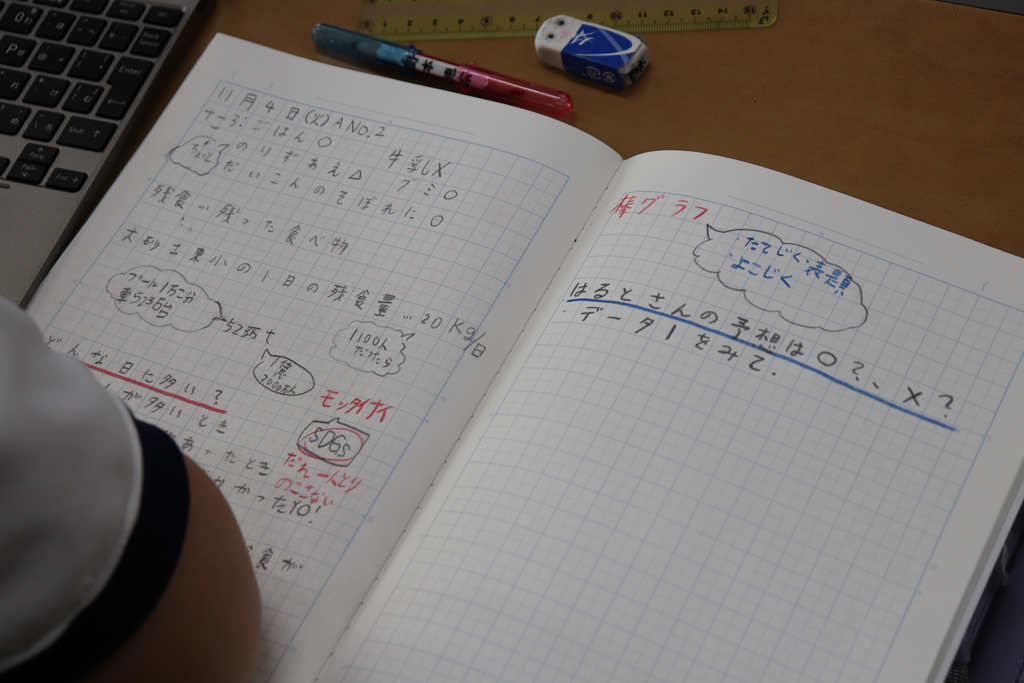 11月4日(火)A No.2
ごはん ○
牛乳 X
のりずあえ △
グミ ○
だいこんのそぼろに ○
残食…残った食べ物
大砂土東小の1日の残食量…20Kg/日
プール1万こ分
車573万台
523万t
1100人
だったら
1億
2000万人
どんな日に多い?
が多いとき
モッタイナイ
SDGs
あったとき
だれ一人とり
のこさない
かったYO!
食が
棒グラフ
・たてじく・表題
・よこじく
はるとさんの予想は○?、X?
・データ1をみて.